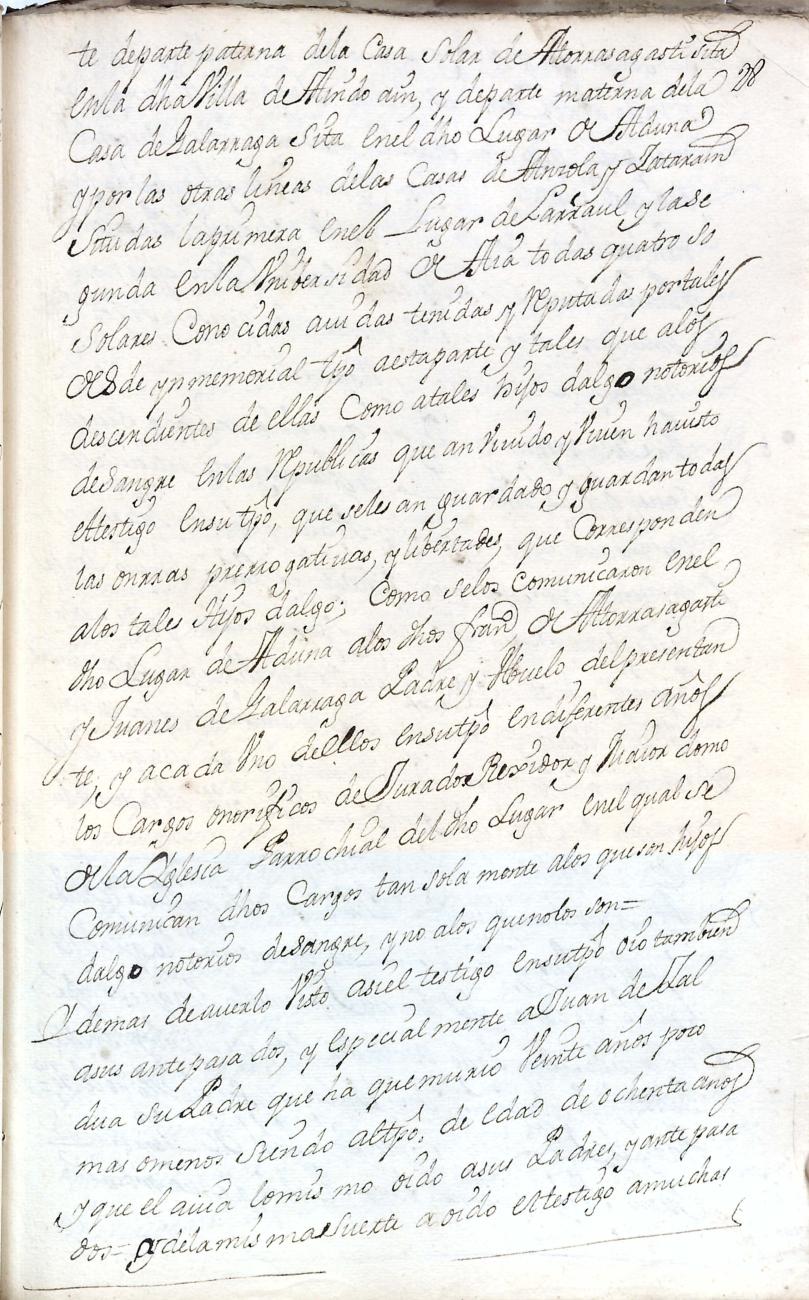 te departe paterna dela Casa Solar de Atorrasagasti sita
28
enla dha Villa de Aindo ain, y departe materna dela
Casa de Zalarraga Sita enel dho Lugar de Aduna
y por las otras lineas delas Casas de Anziola y Zatarain
Situidas la primera enel Lugar de Larraul y la se
gunda enla Vnibersidad de Aia todas quatro so
Solares Conocidas auidas tenidas y Reputadas por tales
desde ynmemorial tpõ aestaparte y tales que alos
descendientes de ellas Como atales hijos dalgo notorios
desangre enlas Republicas que an Viuido y Viuen hauisto
eltestigo ensutpõ, que seles an guardado y guardan todas
las onrras prerrogatiuas, y libertades, que Corresponden
alos tales Hijos dalgo; Como selos comunicaron enel
dho Lugar de Aduna alos dhos fran de Atorrasagasti
y Juanes de Zalarraga Padre y Abuelo del presentan
te, y acada Vno dellos ensutpõ endiferentes años
los Cargos onorificos de Jurador Rexidor y Maior domo
dela Yglesia Parrochial del dho Lugar enel qual se
Comunican dhos Cargos tan sola mente alos que son hijos
dalgo notorios desangre, y no alos quenolos son=
Y demas de auerlo Visto asiel testigo ensutpõ oio tambien
asus antepasados, y especialmente a Juan de Zal
dua su Padre que ha que murio Veinte años poco
mas omenos siendo altpõ. de edad de ochenta años
y que el auia lomis mo oido asus Padres, y ante pasa
dos= y delamisma suerte a oido eltestigo amuchas